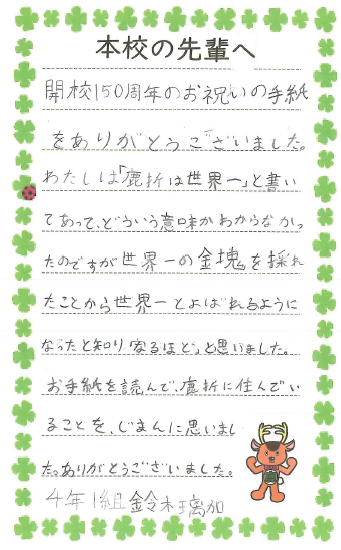 本校の先輩へ
開校150周年のお祝いの手紙
をありがとうございました。
わたしは「鹿折は世界一」と書い
てあって、どういう意味かわからなかっ
たのですが世界一の金塊を採れ
たことから世界一とよばれるように
なったと知りなるほどと思いました。
お手紙を読んで、鹿折に住んでい
ることを、じまんに思いまし
た。ありがとうございました。
4年1組 鈴木璃加